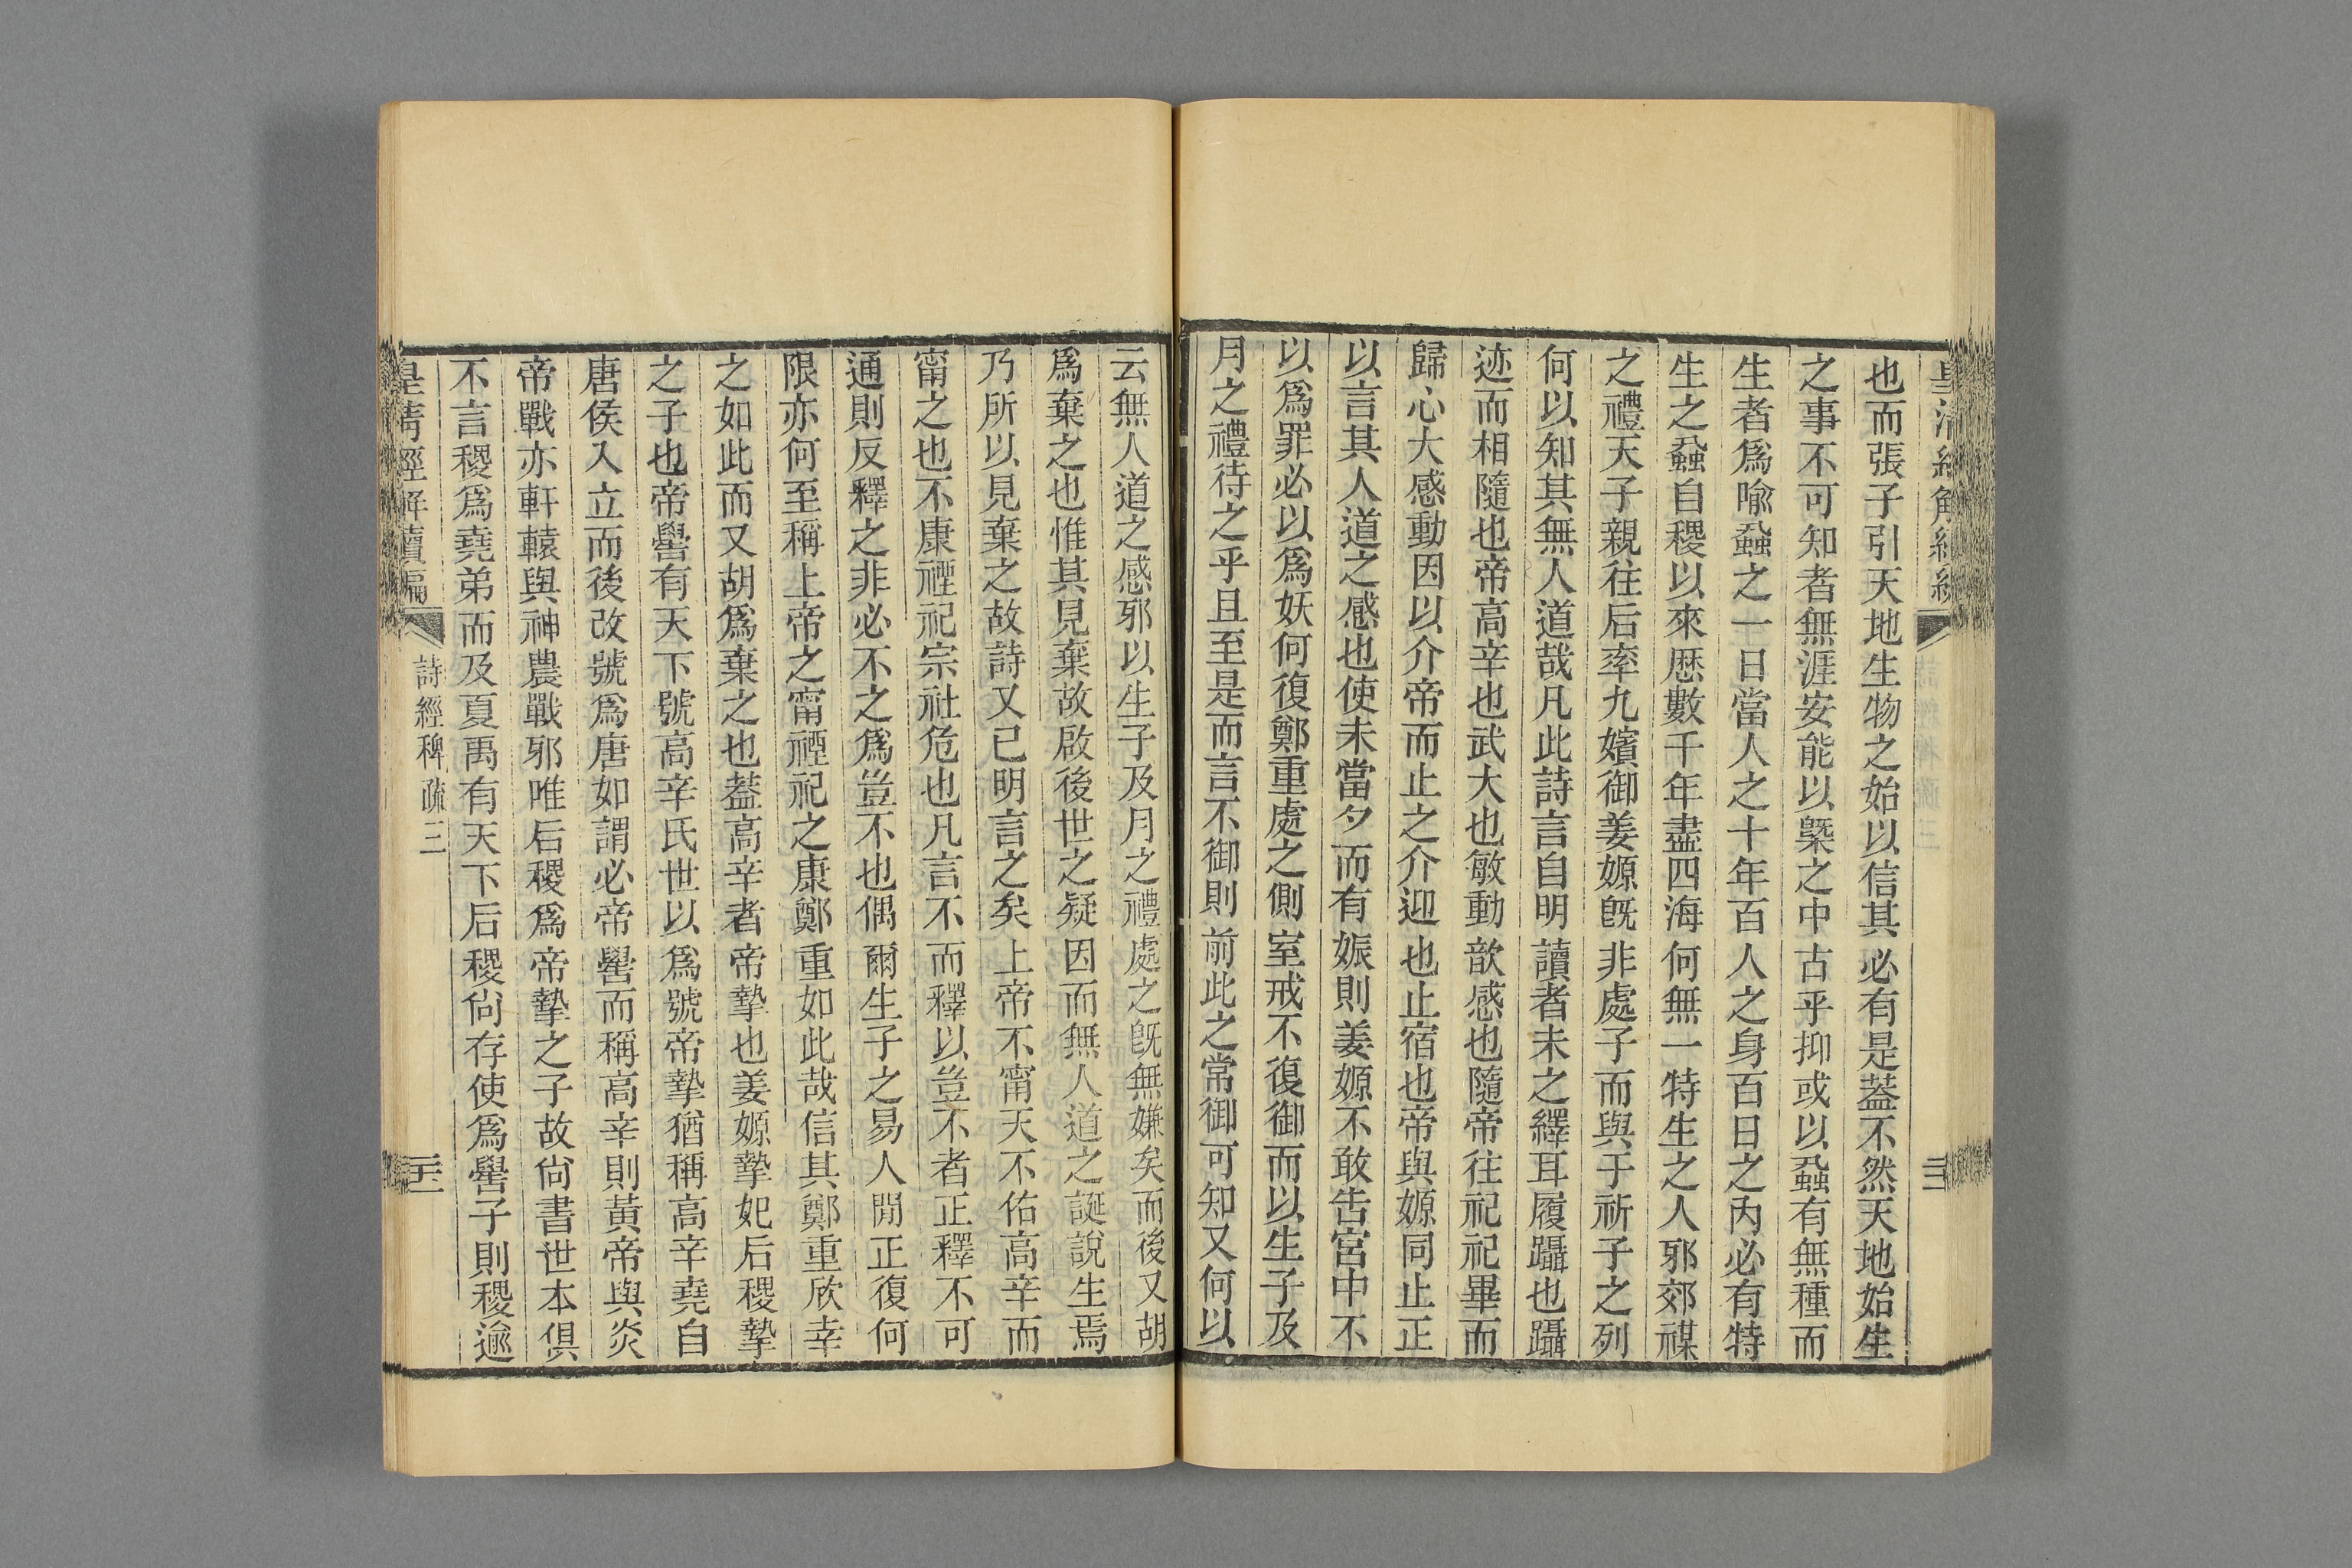 皇清經解續編
三
也而張子引天地生物之始以信其必有是葢不然天地始生
之事不可知者無涯安能以槩之中古乎抑或以蝨有無種而
生者爲喩蝨之一日當人之十年百人之身百日之內必有特
生之蝨自稷以來厯數千年盡四海何無一特生之人邪郊禖
之禮天子親往后率九嬪御姜嫄旣非處子而與于祈子之列
何以知其無人道哉凡此詩言自明讀者未之繹耳履躡也躡
迹而相隨也帝高辛也武大也敏動歆感也隨帝往祀祀畢而
歸心大感動因以介帝而止之介迎也止宿也帝與嫄同止正
以言其人道之感也使未當夕而有娠則姜嫄不敢告宮中不
以爲罪必以爲妖何復鄭重處之側室戒不復御而以生子及
月之禮待之乎且至是而言不御則前此之常御可知又何以
云無人道之感邪以生子及月之禮處之旣無嫌矣而後又胡
爲棄之也惟其見棄故啟後世之疑因而無人道之誕說生焉
乃所以見棄之故詩又已明言之矣上帝不甯天不佑高辛而
甯之也不康禋祀宗社危也凡言不而釋以豈不者正釋不可
通則反釋之非必不之爲豈不也偶爾生子之易人閒正復何
限亦何至稱上帝之甯禋祀之康鄭重如此哉信其鄭重欣幸
之如此而又胡爲棄之也葢高辛者帝摯也姜嫄摯妃后稷摯
之子也帝嚳有天下號高辛氏世以爲號帝摯猶稱高辛堯自
唐侯入立而後改號爲唐如謂必帝嚳而稱高辛則黃帝與炎
帝戰亦軒轅與神農戰邪唯后稷爲帝摯之子故尙書世本俱
不言稷爲堯弟而及夏禹有天下后稷尙存使爲嚳子則稷逾
皇清經解續編
詩經稗疏三